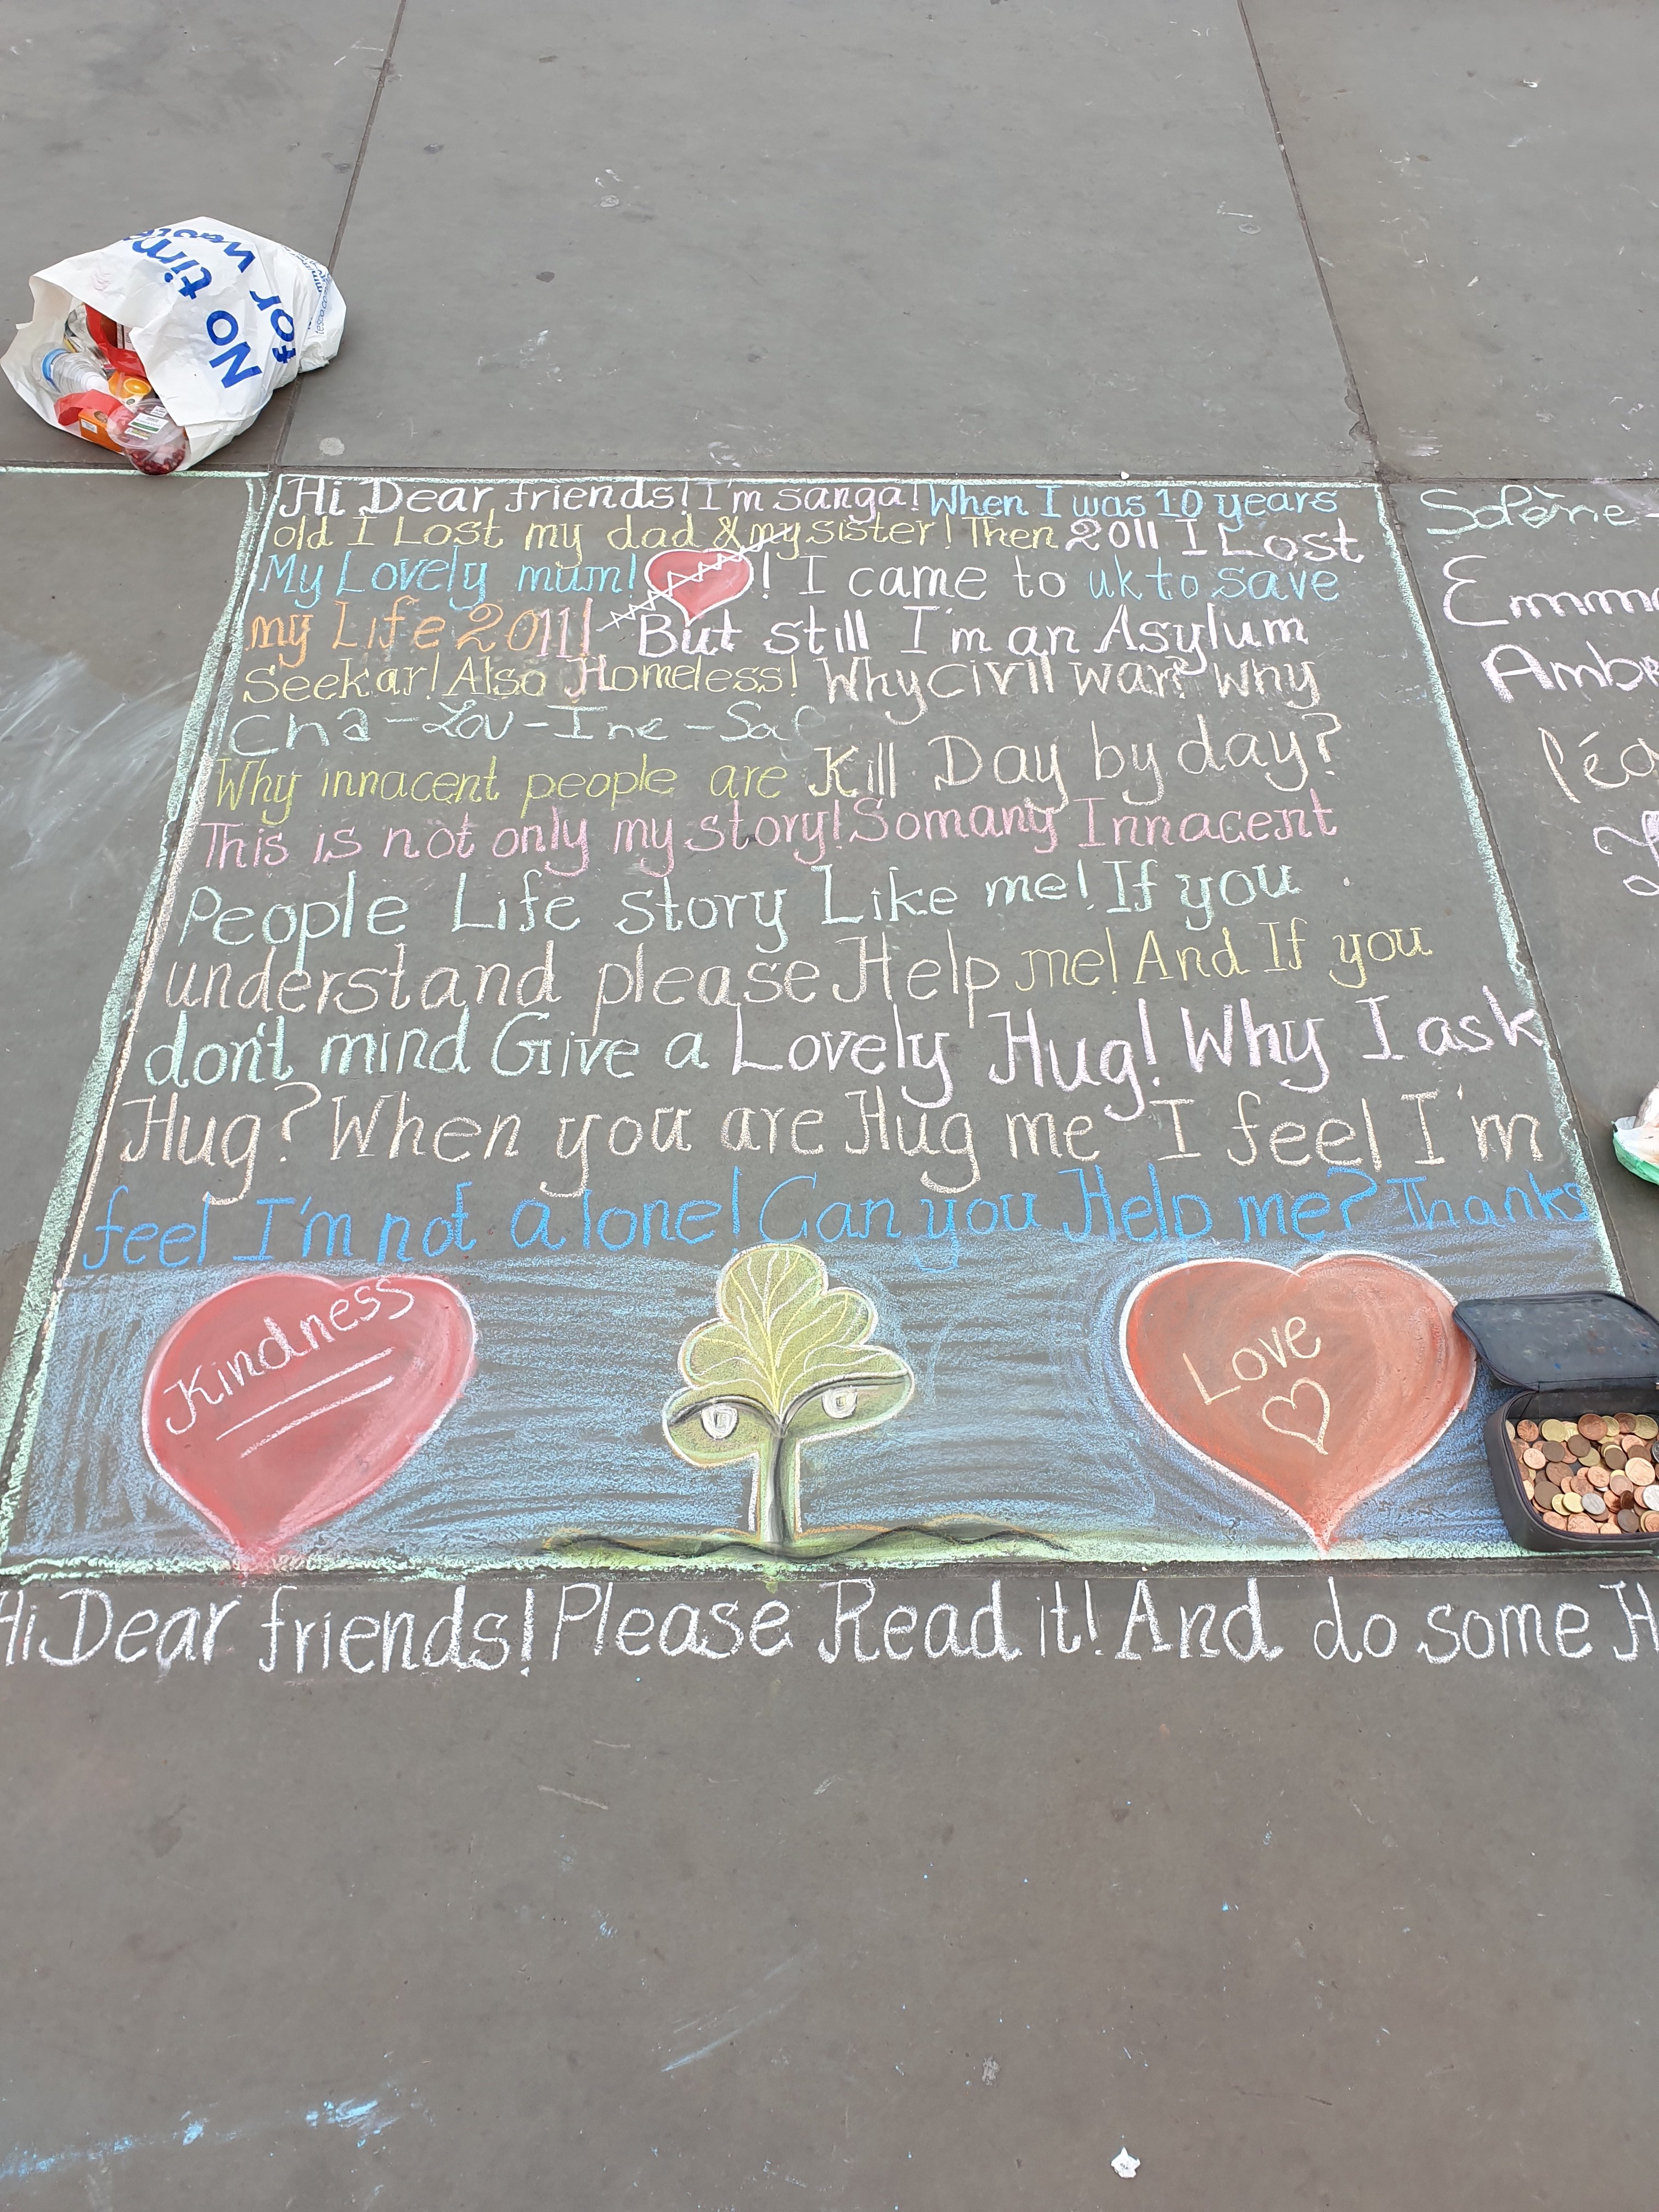 No time
for waste
Hi Dear friends! I'm sanga! When I was 10 years
old I Lost my dad & my sister! Then 2011 I Lost
My Lovely mum! ! I came to uk to save
my Life 2011! But still I'm an Asylum
Seekar! Also Homeless! Why civil war? Why
Cha-Lou-Ine-Saf
Why innacent people are Kill Day by day?
This is not only my story! Somany Innacent
People Life story Like me! If you
understand please Help me! And If you
don't mind Give a Lovely Hug! Why I ask
Hug? When you are Hug me I feel I'm
feel I'm not a lone! Can you Help me? Thanks
Kindness
Love
Hi Dear friends! Please Read it! And do some H
Solène-
Emma
Amb
l'éa